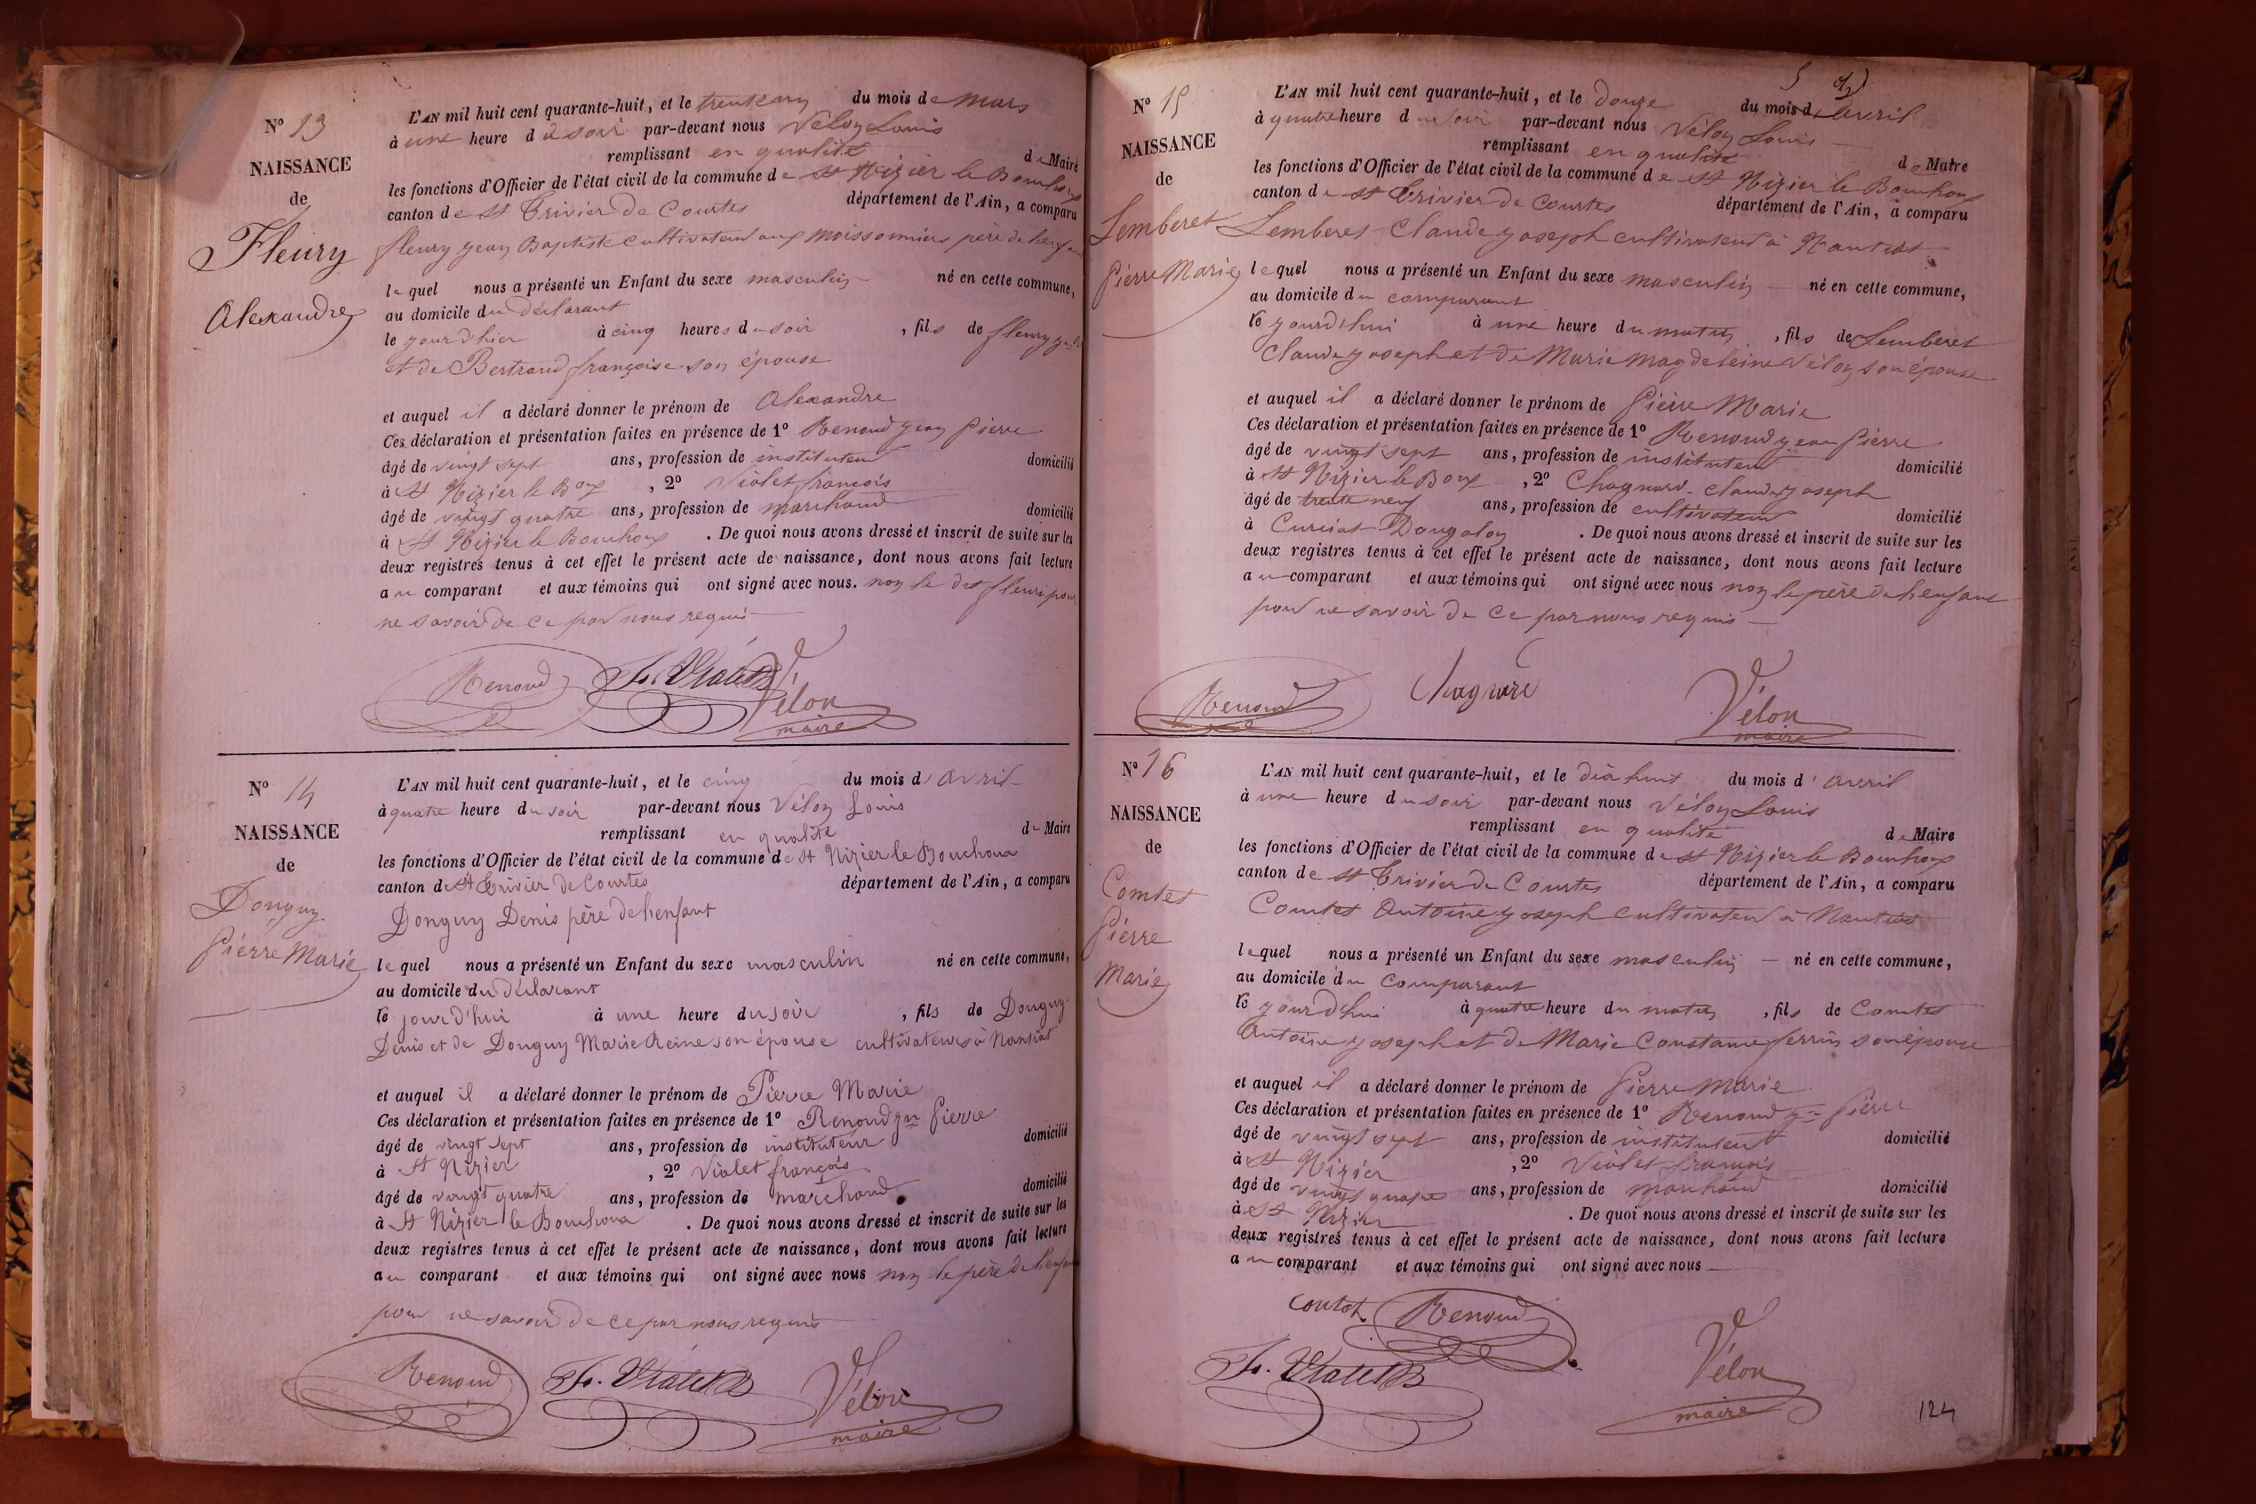 N° 13
NAISSANCE
de
Fleury
Alexandre
L'AN mil huit cent quarante-huit, et le trente un du mois de mars
à une heure du soir par-devant nous Vélon Louis
remplissant en qualité de Maire
les fonctions d'Officier de l'état civil de la commune de St Nizier le Bouchoux
canton de St Trivier de Courtes département de l'Ain, a comparu
fleury jean Baptiste cultivateur aux moissonniers père de l'enfant
lequel nous a présenté un Enfant du sexe masculin né en cette commune,
au domicile du déclarant
le jour d'hier à cinq heures du soir, fils de fleury
et de Bertrand françoise son épouse
et auquel il a déclaré donner le prénom de Alexandre
Ces déclaration et présentation faites en présence de 1° Renoud jean Pierre
âgé de vingt sept ans, profession de instituteur domicilié
à St Nizier le Boux, 2° Violet françois
âgé de vingt quatre ans, profession de marchand domicilié
à St Nizier le Bouchoux. De quoi nous avons dressé et inscrit de suite sur les
deux registres tenus à cet effet le présent acte de naissance, dont nous avons fait lecture
au comparant et aux témoins qui ont signé avec nous. non le dit fleuri pour
ne savoir de ce par nous requis
Renoud Fs. Violet Vélon
maire
N° 14
NAISSANCE
de
Donguy
Pierre Marie
L'AN mil huit cent quarante-huit, et le cinq du mois d'avril
à quatre heure du soir par-devant nous Vélon Louis
remplissant en qualité de Maire
les fonctions d'Officier de l'état civil de la commune de St Nizier le Bouchoux
canton de St Trivier de Courtes département de l'Ain, a comparu
Donguy Denis père de l'enfant
lequel nous a présenté un Enfant du sexe masculin né en cette commune,
au domicile du déclarant
le jour d'hui à une heure du soir, fils de Donguy
Denis et de Donguy Marie Reine son épouse cultivateurs à Nantiat
et auquel il a déclaré donner le prénom de Pierre Marie
Ces déclaration et présentation faites en présence de 1° Renoud jn Pierre
âgé de vingt sept ans, profession de instituteur domicilié
à St Nizier, 2° Violet françois
âgé de vingt quatre ans, profession de marchand domicilié
à St Nizier le Bouchoux. De quoi nous avons dressé et inscrit de suite sur les
deux registres tenus à cet effet le présent acte de naissance, dont nous avons fait lecture
au comparant et aux témoins qui ont signé avec nous non le père de l'enfant
pour ne savoir de ce par nous requis
Renoud Fs. Violet Vélon
maire
N° 15
NAISSANCE
de
Lemberet
Pierre Marie
L'AN mil huit cent quarante-huit, et le douze du mois d'avril
à quatre heure du soir par-devant nous Vélon Louis
remplissant en qualité de Maire
les fonctions d'Officier de l'état civil de la commune de St Nizier le Bouchoux
canton de St Trivier de Courtes département de l'Ain, a comparu
Lemberet Claude joseph cultivateur à Nantiat
lequel nous a présenté un Enfant du sexe masculin né en cette commune,
au domicile du comparant
le jourd'hui à une heure du matin, fils de Lemberet
Claude joseph et de Marie Magdeleine Vélon son épouse
et auquel il a déclaré donner le prénom de Pierre Marie
Ces déclaration et présentation faites en présence de 1° Renoud jean Pierre
âgé de vingt sept ans, profession de instituteur domicilié
à St Nizier le Boux, 2° Chagnard claude joseph
âgé de trente neuf ans, profession de cultivateur domicilié
à Curciat Dongalon. De quoi nous avons dressé et inscrit de suite sur les
deux registres tenus à cet effet le présent acte de naissance, dont nous avons fait lecture
au comparant et aux témoins qui ont signé avec nous non le père de l'enfant
pour ne savoir de ce par nous requis
Renoud Vélon
maire
N° 16
NAISSANCE
de
Comtet
Pierre
Marie
L'AN mil huit cent quarante-huit, et le dix huit du mois d'avril
à une heure du soir par-devant nous Vélon Louis
remplissant en qualité de Maire
les fonctions d'Officier de l'état civil de la commune de St Nizier le Bouchoux
canton de St Trivier de Courtes département de l'Ain, a comparu
Comtet Antoine joseph cultivateur à Nantiat
lequel nous a présenté un Enfant du sexe masculin né en cette commune,
au domicile du comparant
le jourd'hui à quatre heure du matin, fils de Comtet
Antoine joseph et de Marie Constance perrin son épouse
et auquel il a déclaré donner le prénom de Pierre Marie
Ces déclaration et présentation faites en présence de 1° Renoud jn Pierre
âgé de vingt sept ans, profession de instituteur domicilié
à St Nizier, 2° Violet françois
âgé de vingt quatre ans, profession de marchand domicilié
à St Nizier. De quoi nous avons dressé et inscrit de suite sur les
deux registres tenus à cet effet le présent acte de naissance, dont nous avons fait lecture
au comparant et aux témoins qui ont signé avec nous
contet Renoud
Fs. Violet Vélon
maire
124